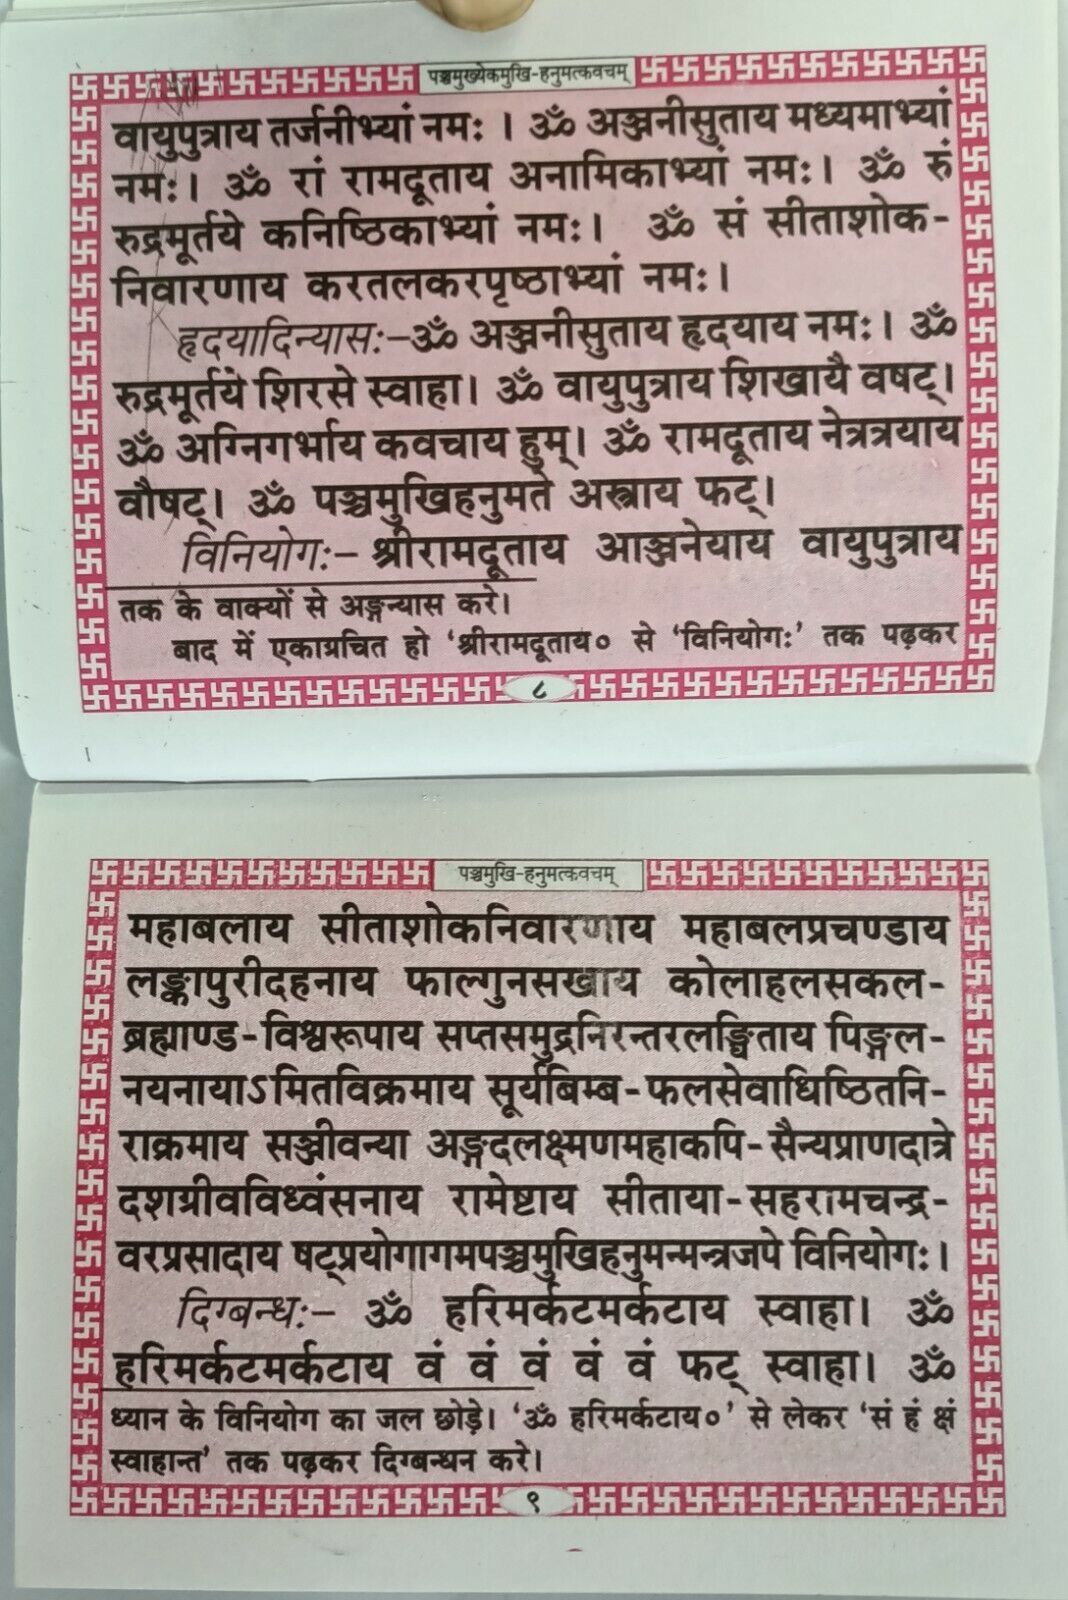 पञ्चमुख्येकमुखि-हनुमत्कवचम्
वायुपुत्राय तर्जनीभ्यां नमः । ॐ अञ्जनीसुताय मध्यमाभ्यां
नमः। ॐ रां रामदूताय अनामिकाभ्यां नमः। ॐ रुं
रुद्रमूर्तये कनिष्ठिकाभ्यां नमः। ॐ सं सीताशोक-
निवारणाय करतलकरपृष्ठाभ्यां नमः।
हृदयादिन्यासः-ॐ अञ्जनीसुताय हृदयाय नमः। ॐ
रुद्रमूर्तये शिरसे स्वाहा। ॐ वायुपुत्राय शिखायै वषट्।
ॐ अग्निगर्भाय कवचाय हुम्। ॐ रामदूताय नेत्रत्रयाय
वौषट्। ॐ पञ्चमुखिहनुमते अस्त्राय फट्।
विनियोगः- श्रीरामदूताय आञ्जनेयाय वायुपुत्राय
तक के वाक्यों से अङ्गन्यास करे।
बाद में एकाग्रचित हो ‘श्रीरामदूताय० से ‘विनियोगः’ तक पढ़कर
८
पञ्चमुखि-हनुमत्कवचम्
महाबलाय सीताशोकनिवारणाय महाबलप्रचण्डाय
लङ्कापुरीदहनाय फाल्गुनसखाय कोलाहलसकल-
ब्रह्माण्ड-विश्वरूपाय सप्तसमुद्रनिरन्तरलङ्घिताय पिङ्गल-
नयनायाऽमितविक्रमाय सूर्यबिम्ब-फलसेवाधिष्ठितनि-
राक्रमाय सञ्जीवन्या अङ्गदलक्ष्मणमहाकपि-सैन्यप्राणदात्रे
दशग्रीवविध्वंसनाय रामेष्टाय सीताया-सहरामचन्द्र-
वरप्रसादाय षट्प्रयोगागमपञ्चमुखिहनुमन्मन्त्रजपे विनियोगः।
दिग्बन्धः- ॐ हरिमर्कटमर्कटाय स्वाहा। ॐ
हरिमर्कटमर्कटाय वं वं वं वं वं फट् स्वाहा। ॐ
ध्यान के विनियोग का जल छोड़े। ‘ॐ हरिमर्कटाय०’ से लेकर ‘सं हं क्षं
स्वाहान्त’ तक पढ़कर दिग्बन्धन करे।
९